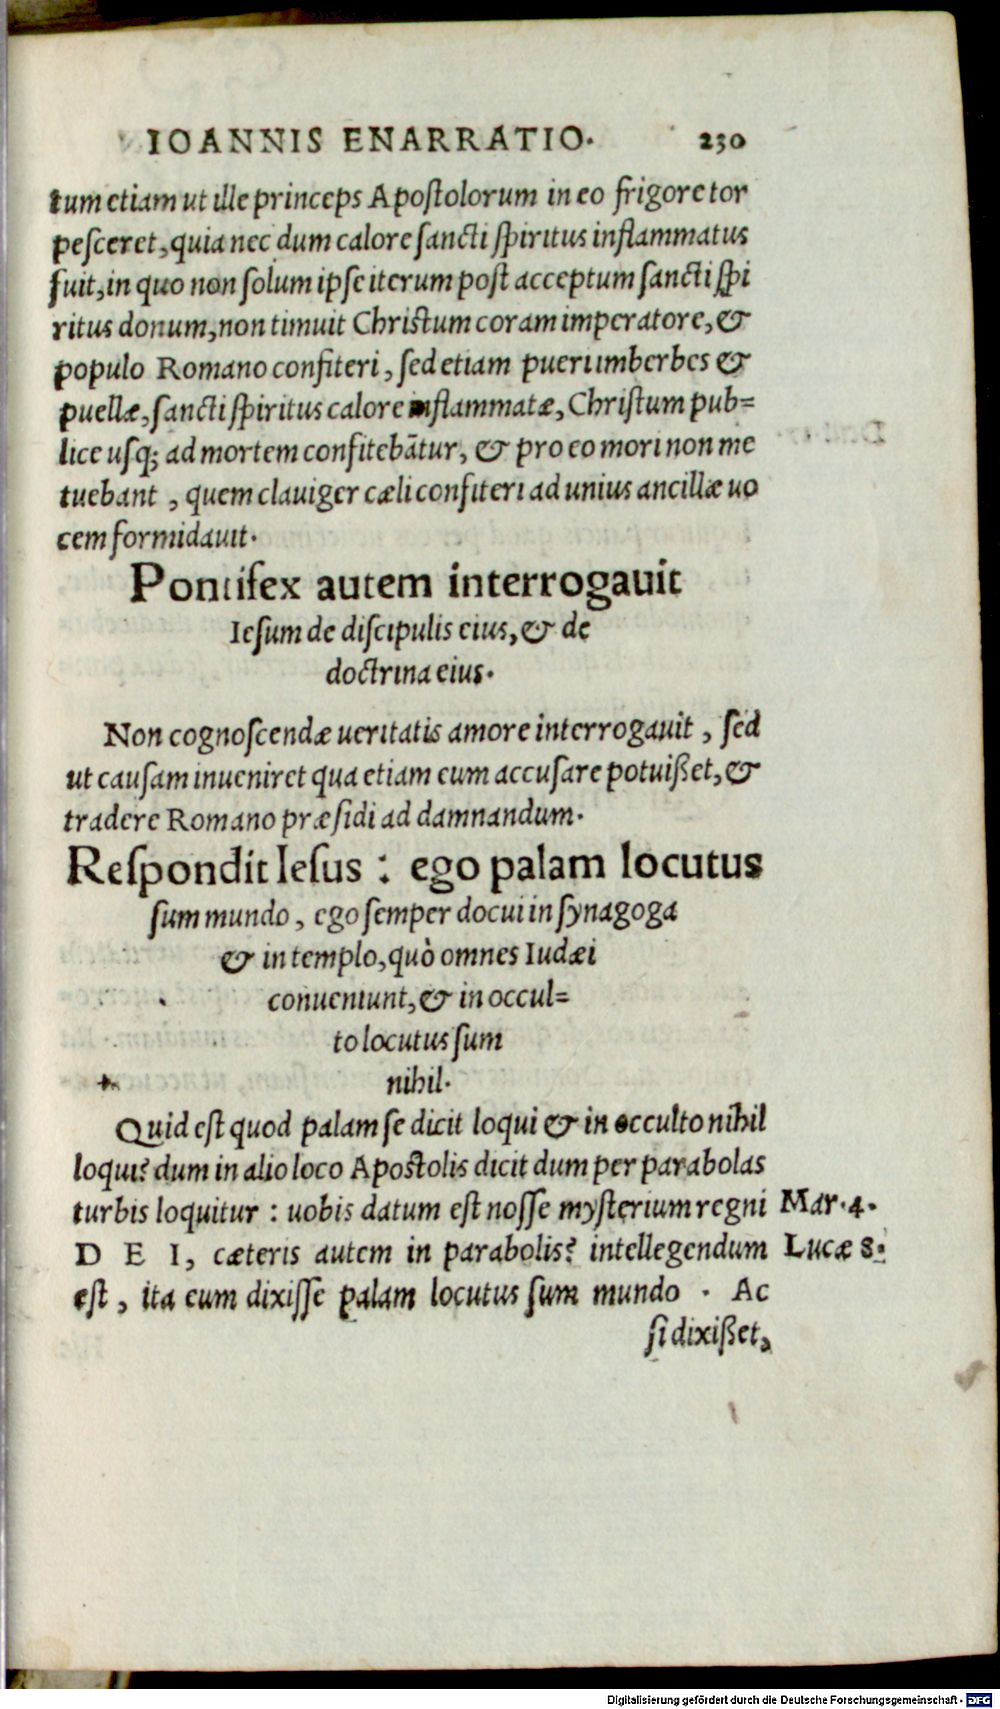 IOANNIS ENARRATIO. 230
tum etiam ut ille princeps Apostolorum in eo frigore tor
pesceret, quia nec dum calore sancti spiritus inflammatus
fuit, in quo non solum ipse iterum post acceptum sancti spi
ritus donum, non timuit Christum coram imperatore, &
populo Romano confiteri, sed etiam pueri imberbes &
puellæ, sancti spiritus calore inflammatæ, Christum pub=
lice usq; ad mortem confitebãtur, & pro eo mori non me
tuebant, quem claviger cæli confiteri ad unius ancillæ uo
cem formidauit.
Pontifex autem interrogauit
Iesum de discipulis eius, & de
doctrina eius.
Non cognoscendæ ueritatis amore interrogauit, sed
ut causam inueniret qua etiam eum accusare potuißet, &
tradere Romano præsidi ad damnandum.
Respondit Iesus : ego palam locutus
sum mundo, ego semper docui in synagoga
& in templo, quò omnes Iudæi
conueniunt, & in occul=
to locutus sum
nihil.
Quid est quod palam se dicit loqui & in occulto nihil
loqui? dum in alio loco Apostolis dicit dum per parabolas
turbis loquitur : uobis datum est nosse mysterium regni Mar. 4.
D E I, cæteris autem in parabolis? intellegendum Lucæ 8.
est, ita eum dixisse palam locutus sum mundo . Ac
si dixißet,
Digitalisierung gefördert durch die Deutsche Forschungsgemeinschaft - DFG